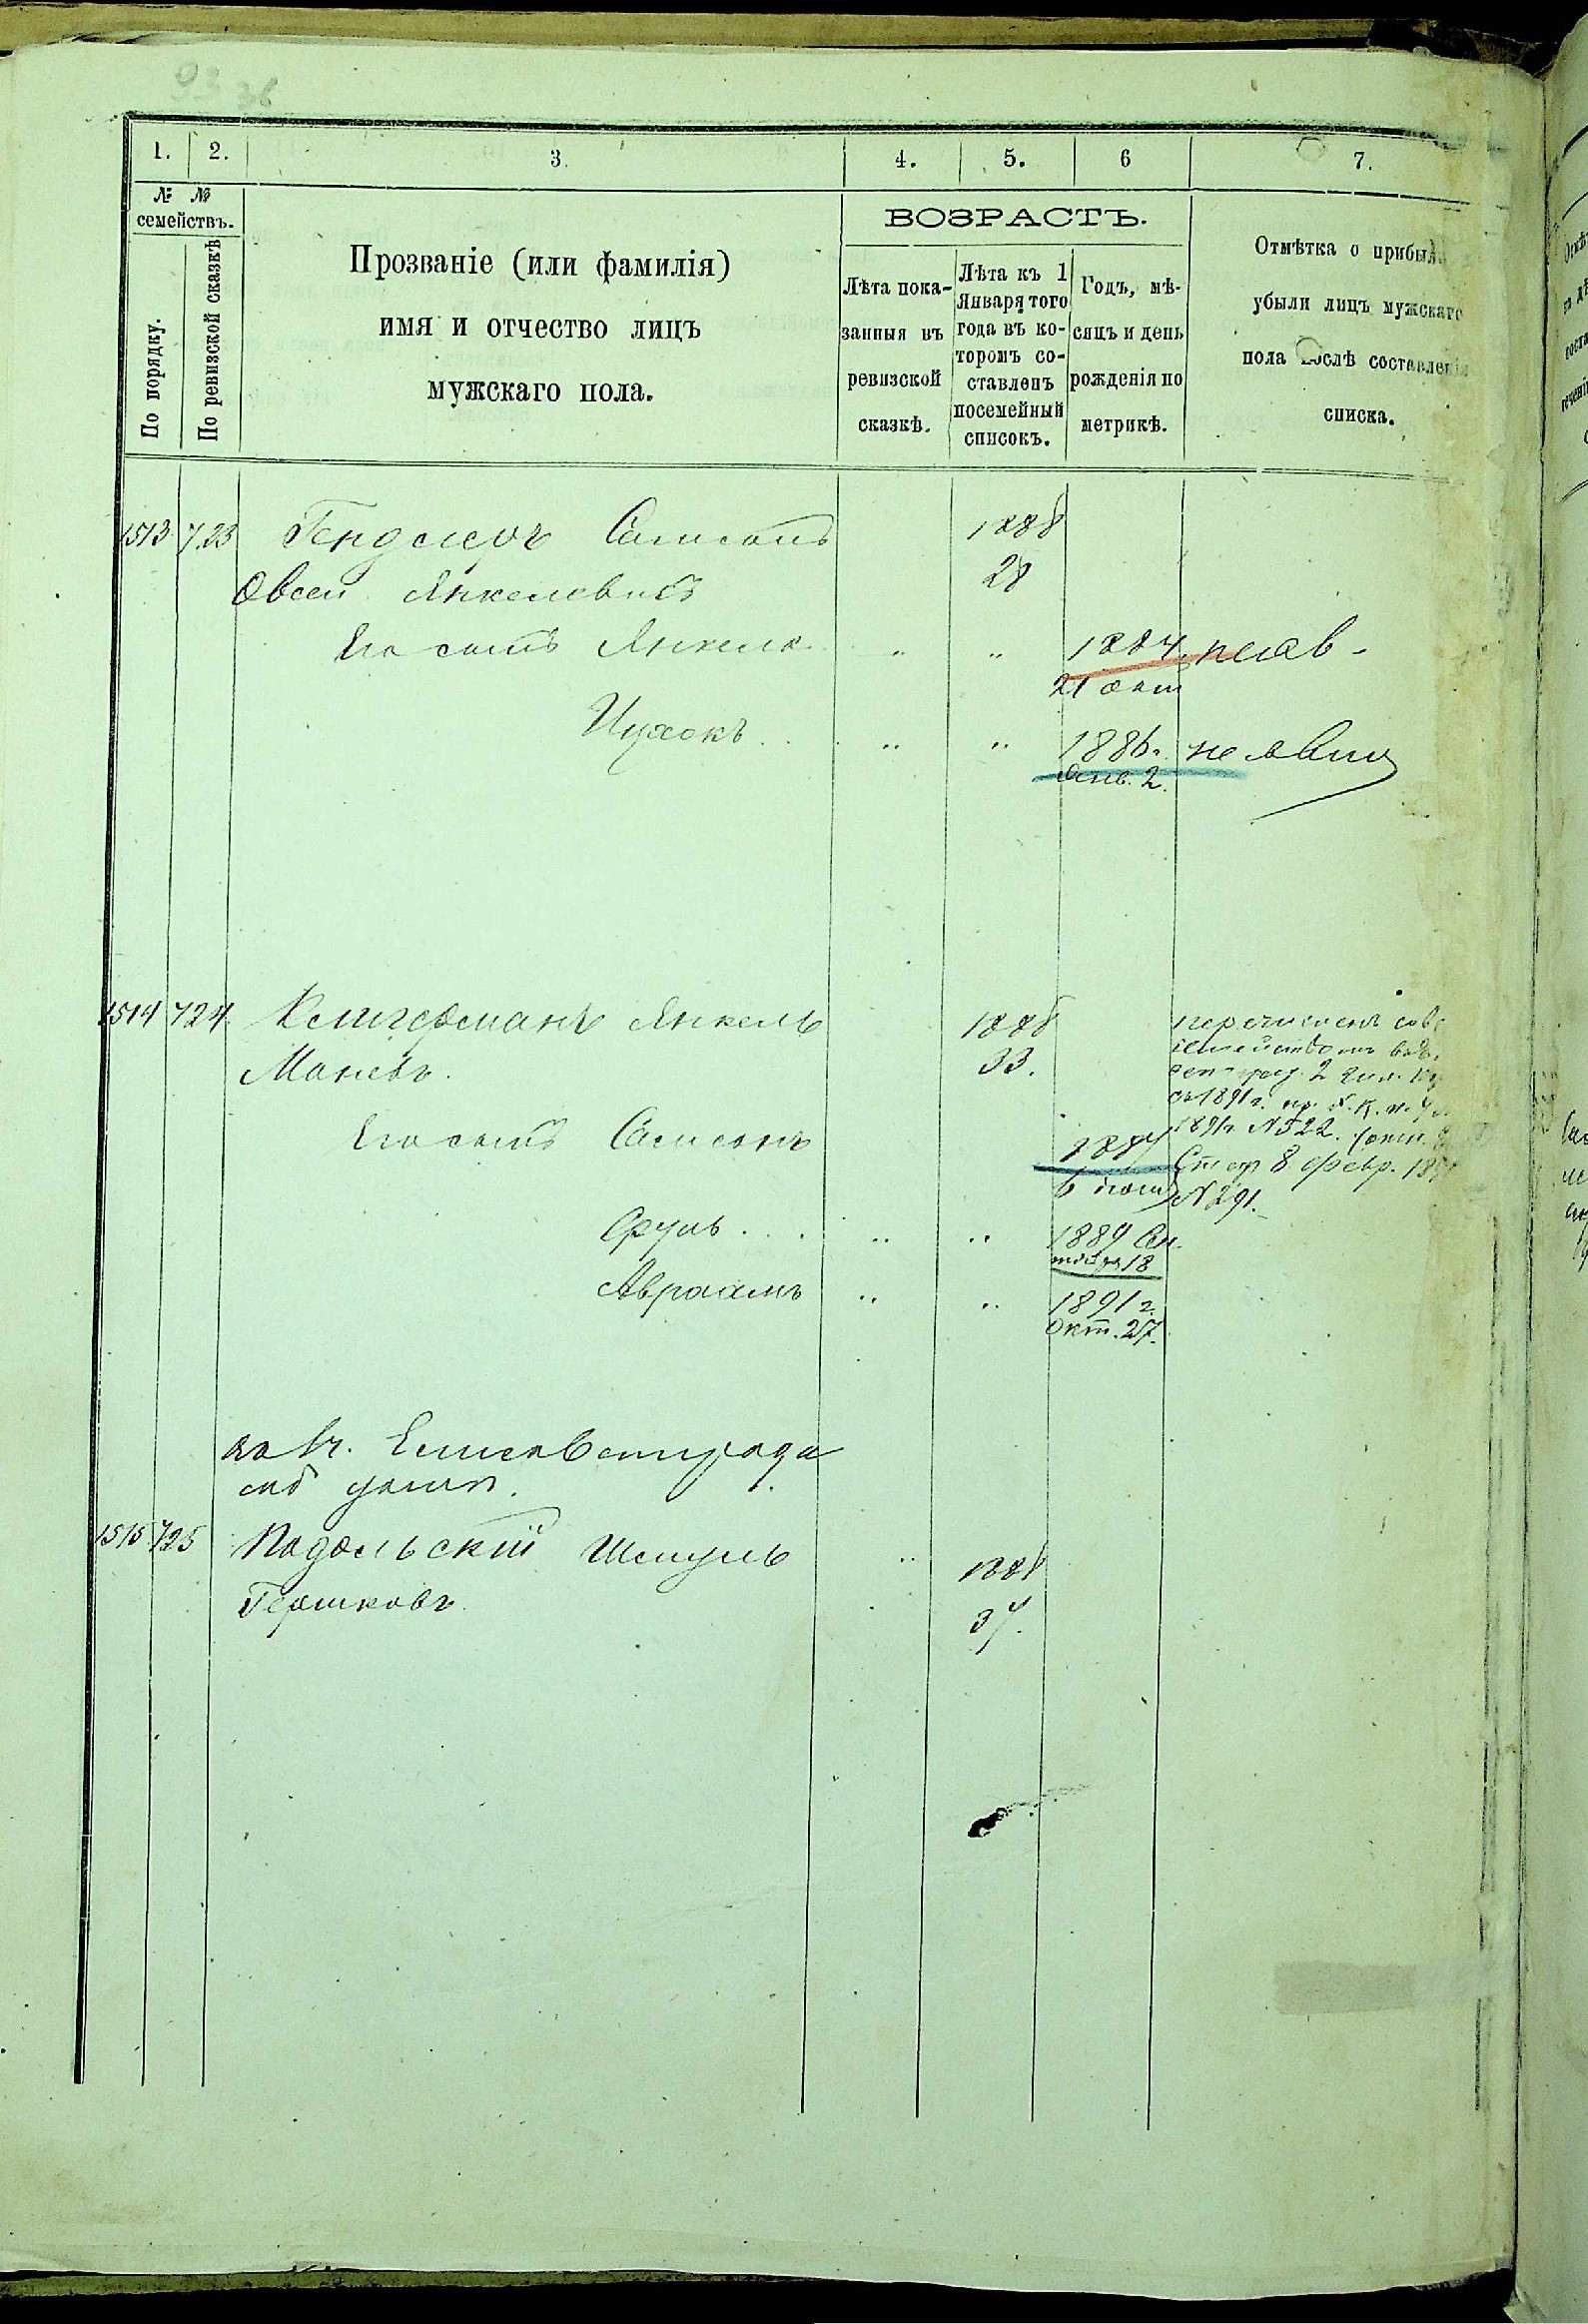 1. 2. 3. 4. 5. 6 7.
№ №
семействъ.
По порядку.
По ревизской сказкѣ
Прозваніе (или фамилія)
имя и отчество лицъ
мужскаго пола.
ВОЗРАСТЪ.
Лѣта пока-
занныя въ
ревизской
сказкѣ.
Лѣта къ 1
Января того
года въ ко-
торомъ со-
ставленъ
посемейный
списокъ.
Годъ, мѣ-
сяцъ и день
рожденія по
метрикѣ.
Отмѣтка о прибыл
убыли лицъ мужскаго
пола послѣ составлені
списка.
1513 723 Гендлеръ Самсонъ 1888
Овсеи Янкелевичъ 28
Его сынъ Янкель " " 1884 неяв-
21 окт
Ицхокъ . . " " 1886г. не явил
Янв. 2.
1514 724 Клигерманъ Янкель 1888
Маневъ. 33.
перечисленъ
семействомъ
2 гил.
съ 1891 г.
1891г. № 522.
8 февр.
№ 291.
Его сынъ Самсонъ 1887
6
Сруль . . . " " 1889 Сен-
тября 18
Авраамъ " " 1891 г.
Окт. 27.
Елисаветграда
1515 725 Подольскій Шмуль " 1888
Гершковъ 37.